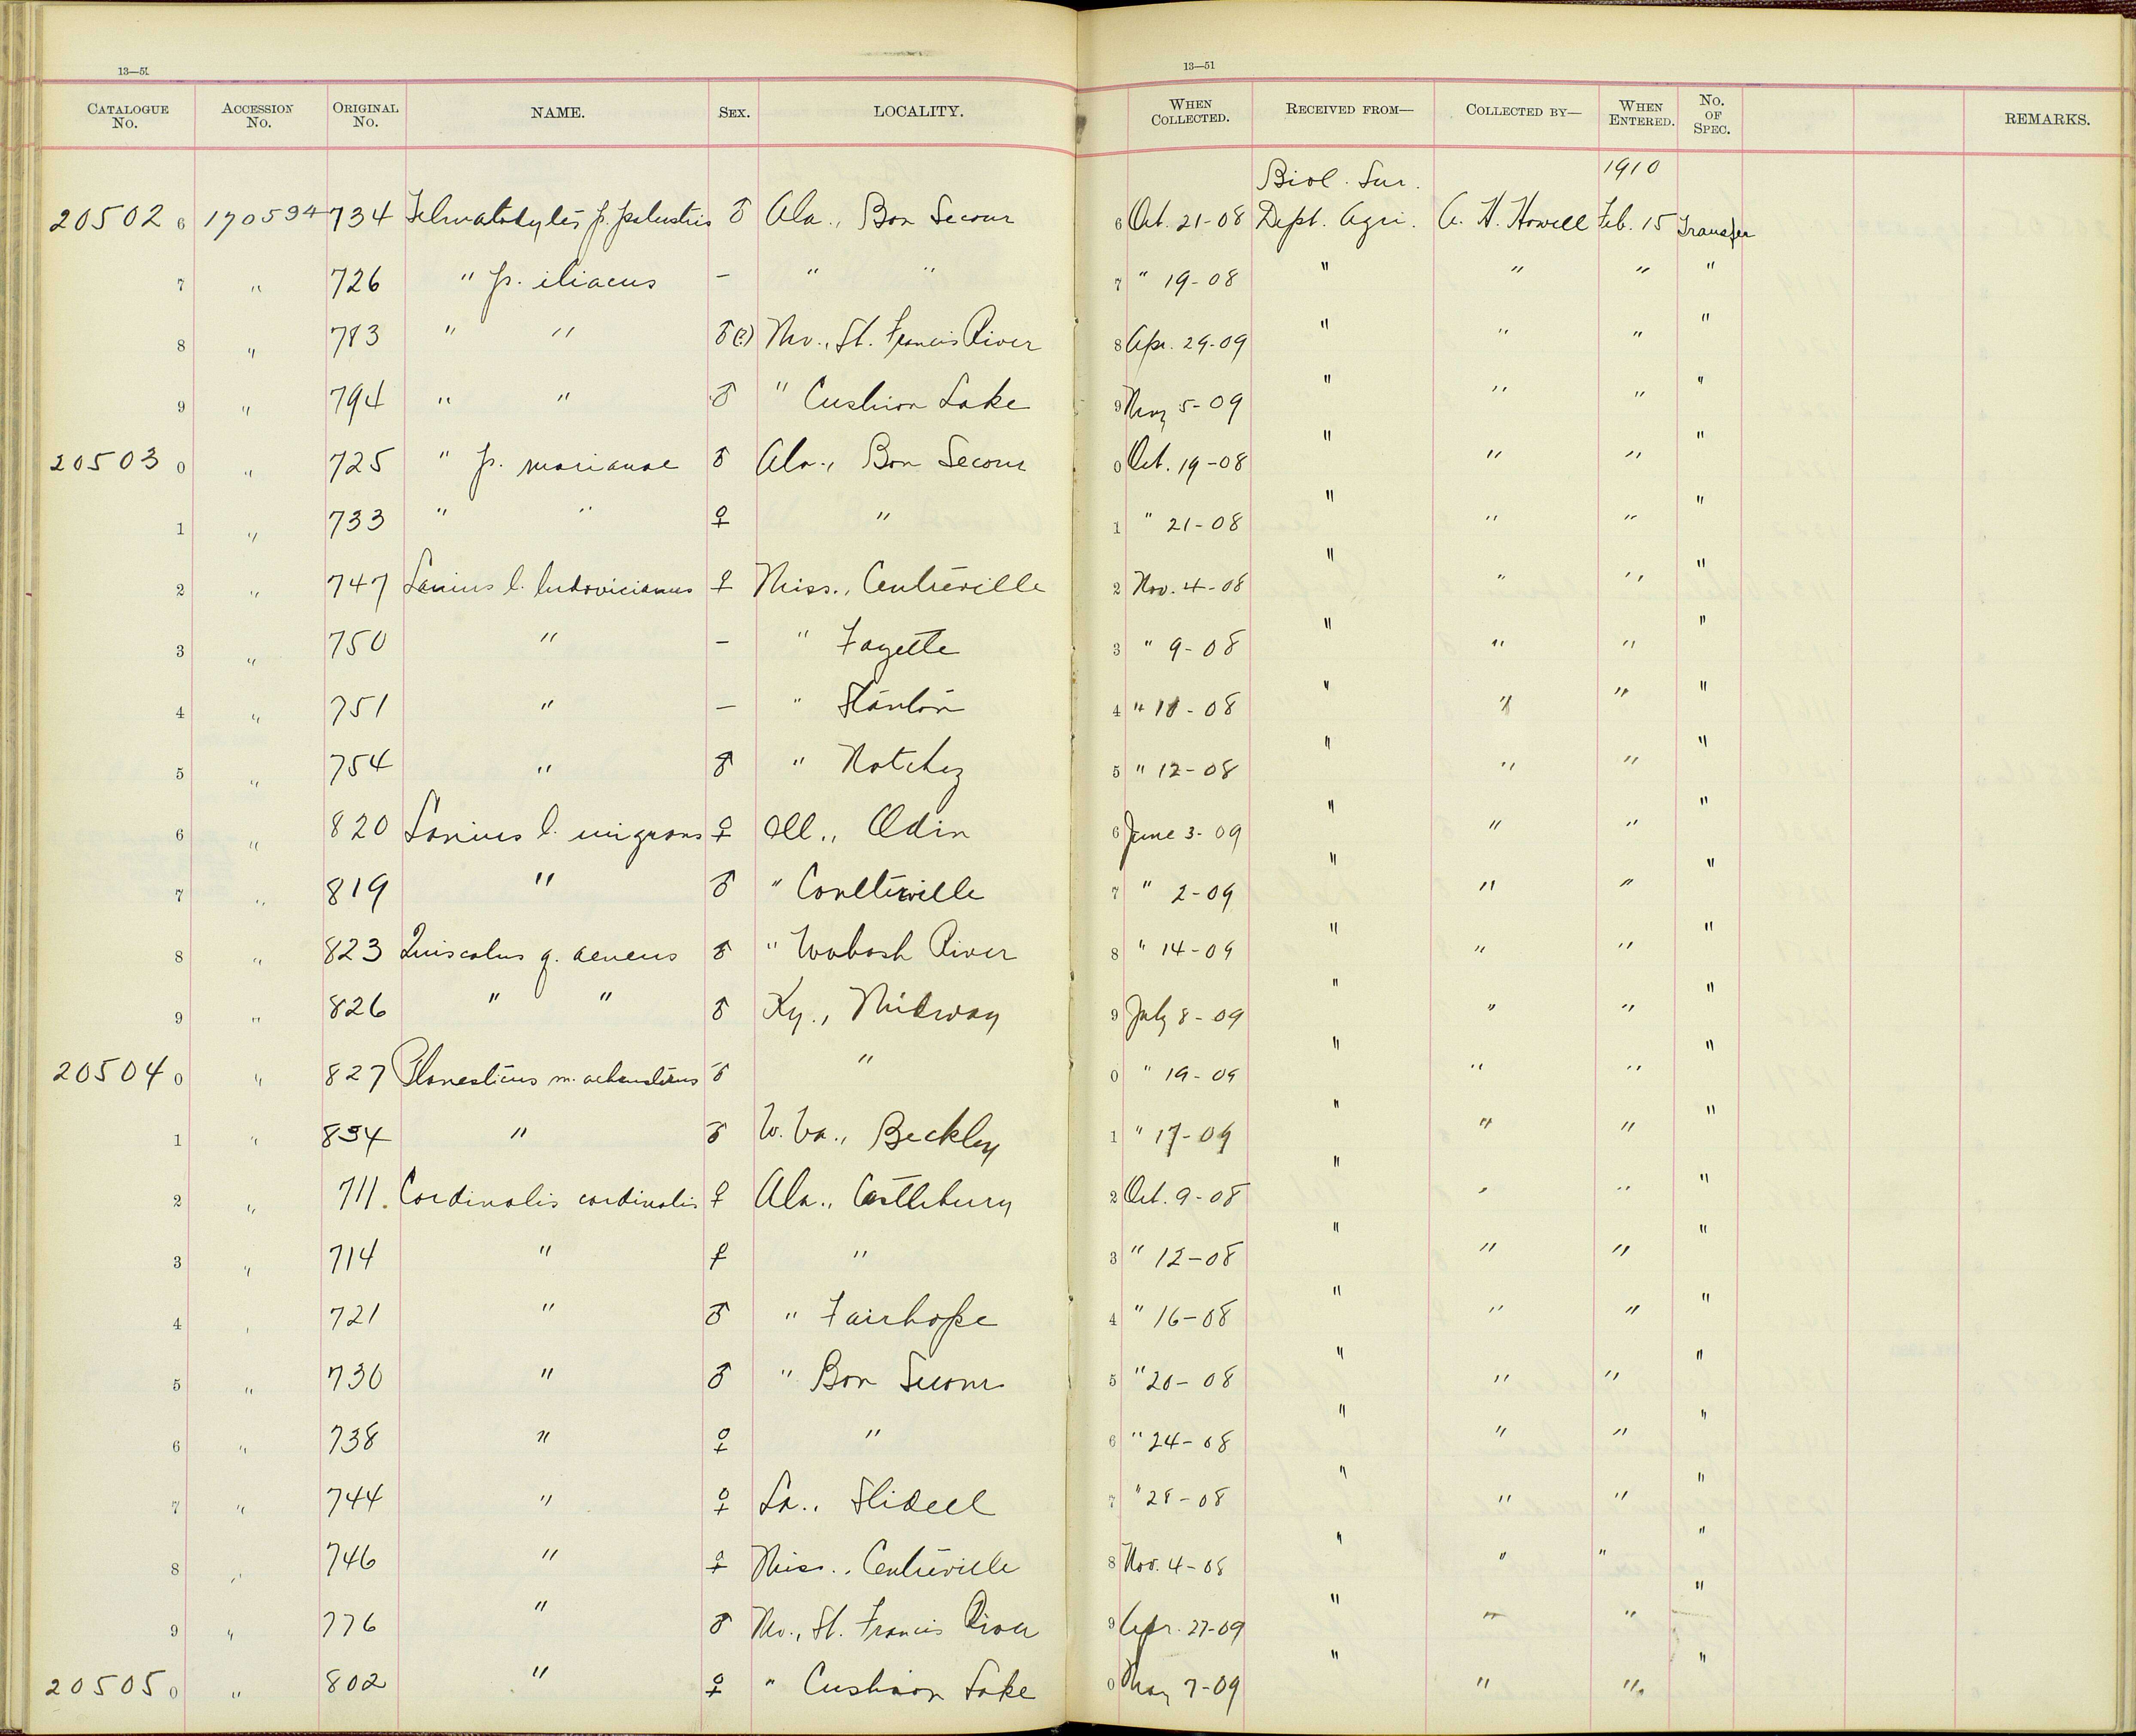 13—51 13—51
CATALOGUE No. ACCESSION No. ORIGINAL No. NAME. SEX. LOCALITY. WHEN COLLECTED. RECEIVED FROM— COLLECTED BY— WHEN ENTERED. No. OF SPEC. REMARKS.
Biol. Sur. 1910
20502 6 170594 734 Telmatodytes p. palustris ♂ Ala., Bon Secour 6 Oct. 21-08 Dept. Agri. A. H. Howell Feb. 15 Transfer
7 " 726 " p. iliacus — " " 7 " 19-08 " " " "
8 " 783 " " ♂(?) Mo., St. Francis River 8 Apr. 29-09 " " " "
9 " 794 " " ♂ " Cushion Lake 9 May 5-09 " " " "
20503 0 " 725 " p. marianae ♂ Ala., Bon Secour 0 Oct. 19-08 " " " "
1 " 733 " " ♀ " 1 " 21-08 " " " "
2 " 747 Lanius l. ludovicianus ♀ Miss., Centreville 2 Nov. 4-08 " " " "
3 " 750 " — " Fayette 3 " 9-08 " " " "
4 " 751 " — " Stanton 4 " 10-08 " " " "
5 " 754 " ♂ " Natchez 5 " 12-08 " " " "
6 " 820 Lanius l. migrans ♀ Ill., Odin 6 June 3-09 " " " "
7 " 819 " ♂ " Coulterville 7 " 2-09 " " " "
8 " 823 Quiscalus q. aeneus ♂ " Wabash River 8 " 14-09 " " " "
9 " 826 " " ♂ Ky., Midway 9 July 8-09 " " " "
20504 0 " 827 Planesticus m. achrusterus ♂ " 0 " 19-09 " " " "
1 " 834 " ♂ W. Va., Beckley 1 " 17-09 " " " "
2 " 711. Cardinalis cardinalis ♀ Ala., Castlebury 2 Oct. 9-08 " " " "
3 " 714 " ♀ " 3 " 12-08 " " " "
4 " 721 " ♂ " Fairhope 4 " 16-08 " " " "
5 " 730 " ♂ " Bon Secour 5 " 20-08 " " " "
6 " 738 " ♀ " 6 " 24-08 " " " "
7 " 744 " ♀ La., Slidell 7 " 28-08 " " " "
8 " 746 " ♀ Miss., Centreville 8 Nov. 4-08 " " " "
9 " 776 " ♂ Mo., St. Francis River 9 Apr. 27-09 " " " "
20505 0 " 802 " ♀ " Cushion Lake 0 May 7-09 " " " "